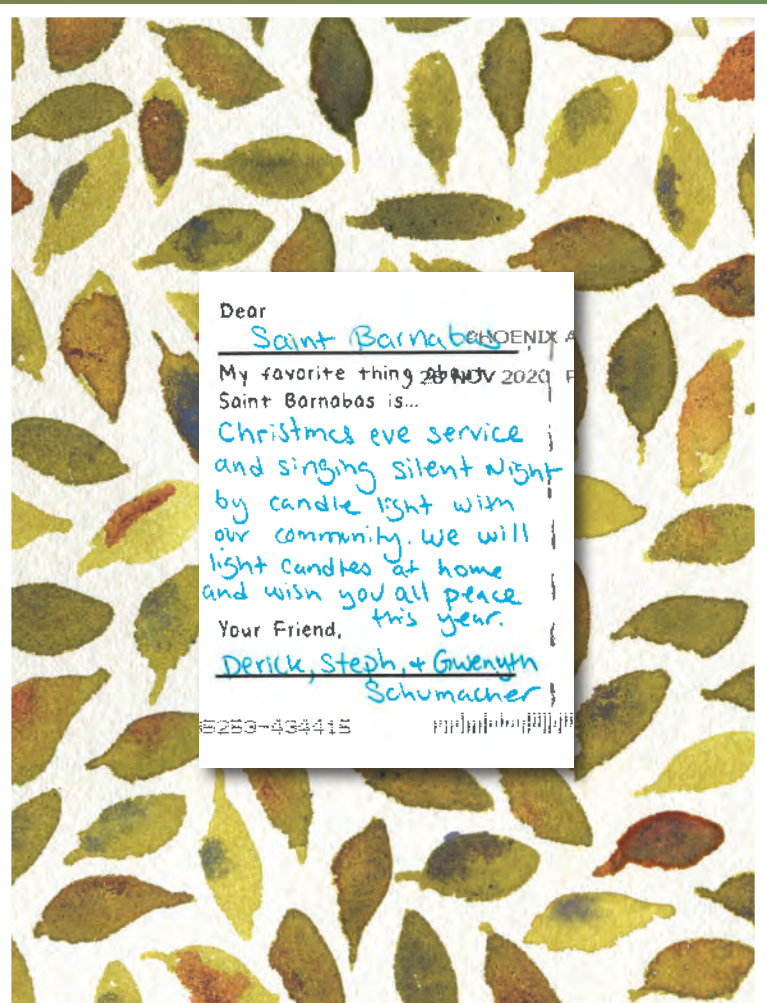 Dear
Saint Barnabas,
PHOENIX A
My favorite thing about
28 NOV 2020 P
Saint Barnabas is...
Christmas eve service
and singing silent Night
by candle light with
our community. we will
light candles at home
and wish you all peace
this year.
Your Friend,
Derick, Steph, + Gwenyth
Schumacher
85253-434415